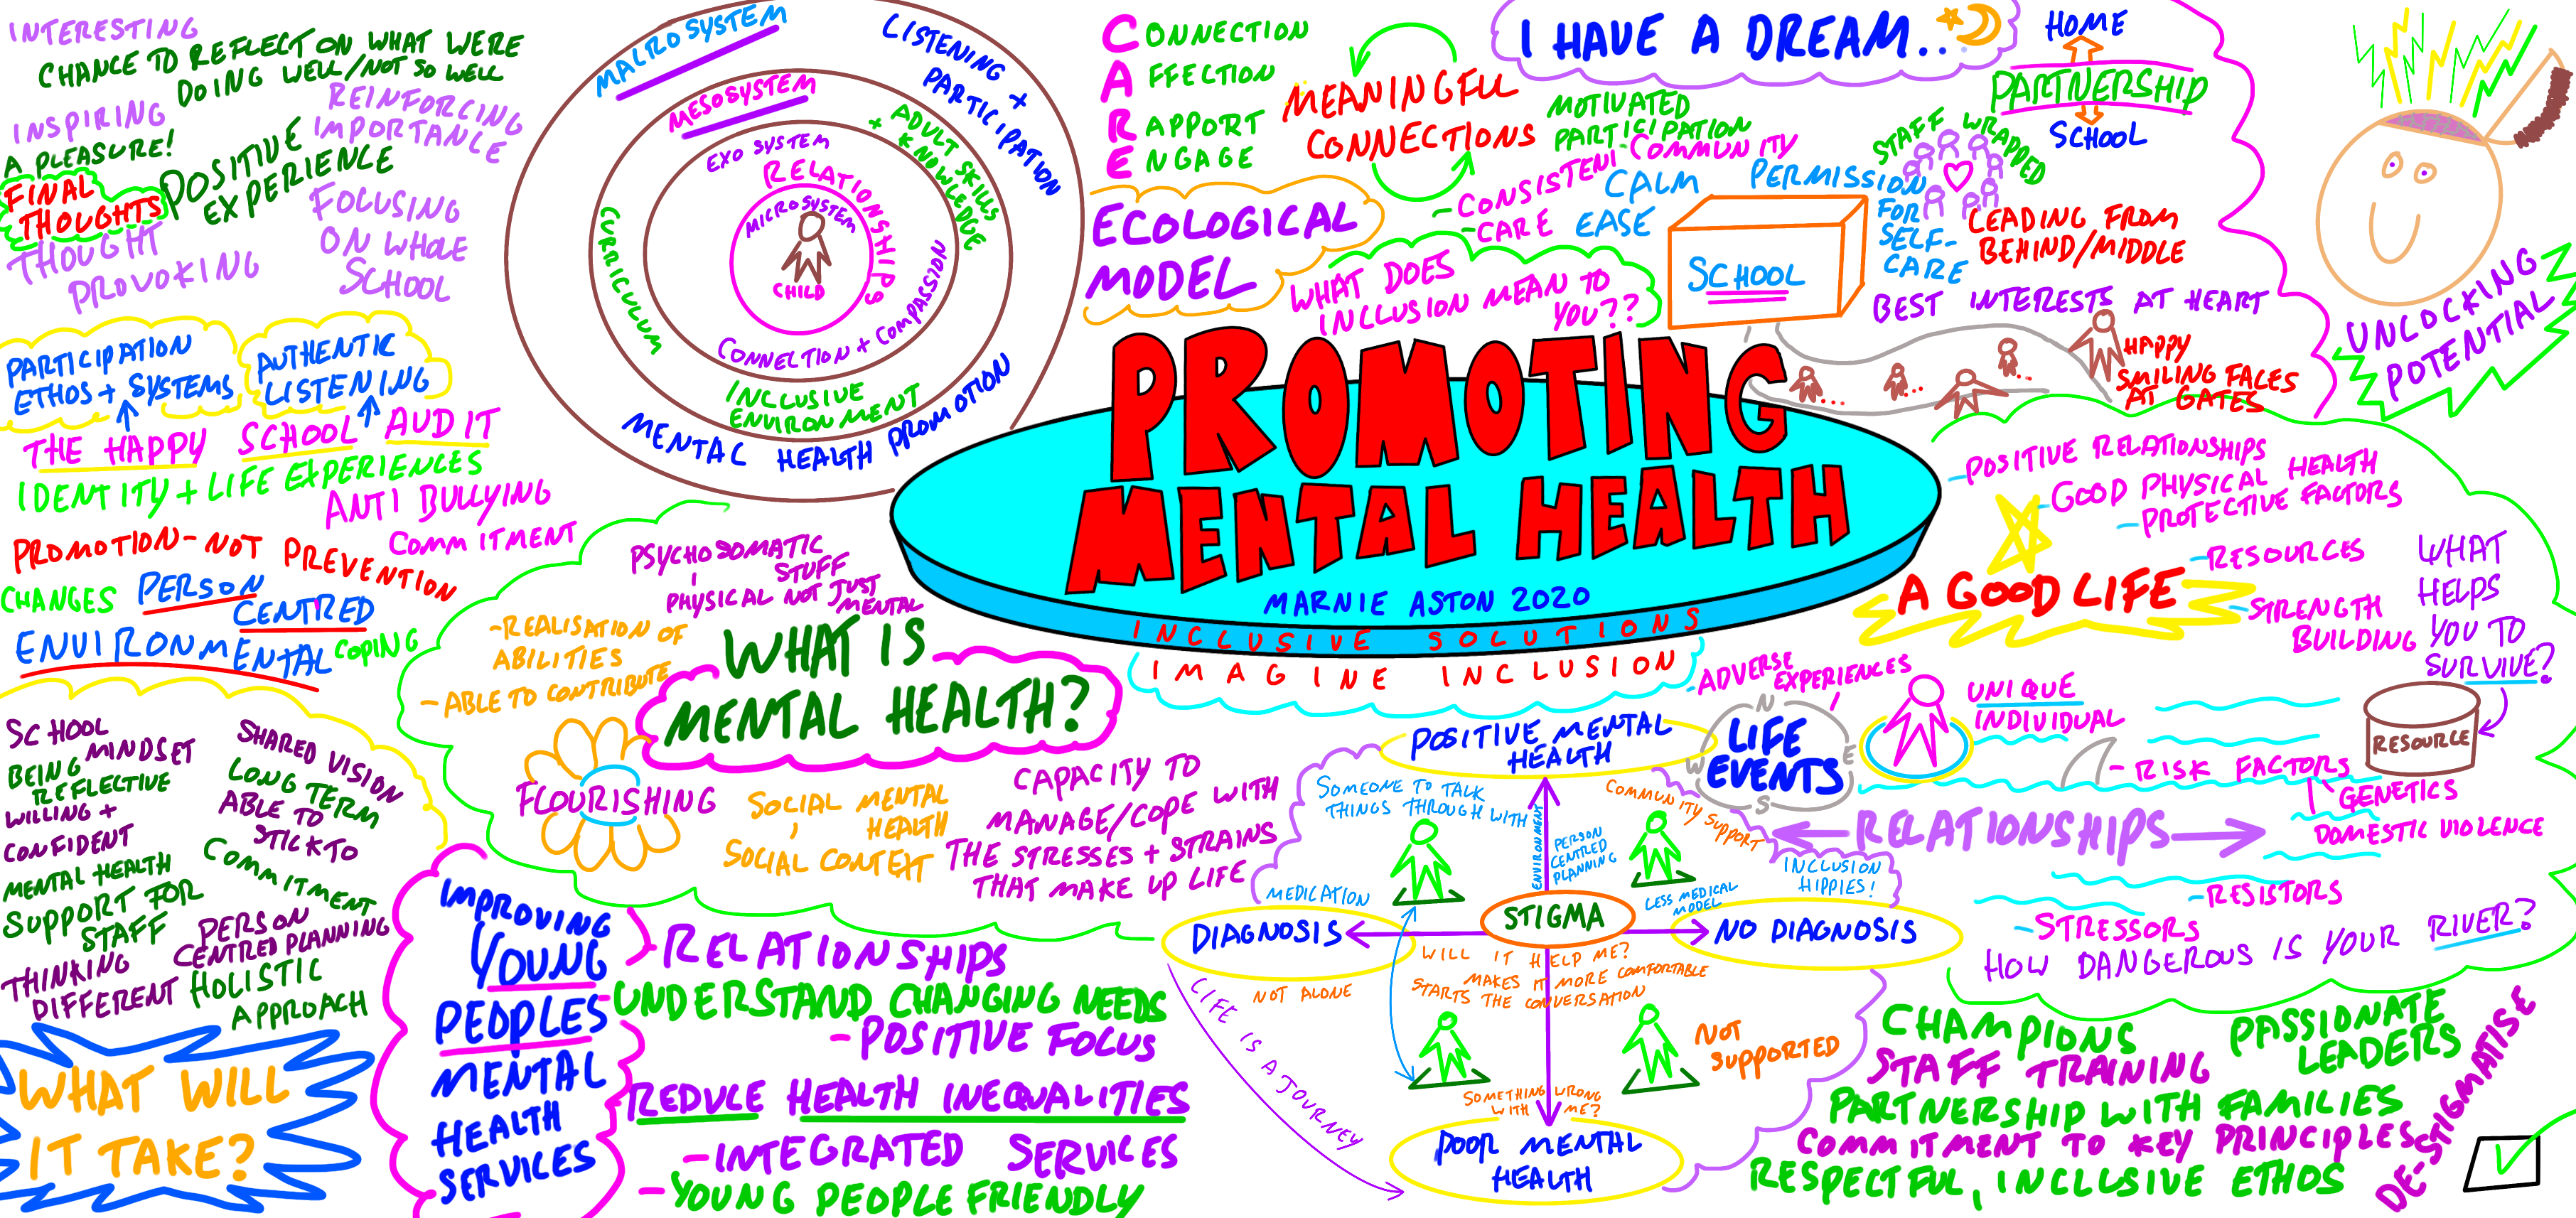 INTERESTING
CHANCE TO REFLECT ON WHAT WERE
DOING WELL/NOT SO WELL
INSPIRING
REINFORCING
IMPORTANCE
A PLEASURE!
POSITIVE
EXPERIENCE
FINAL
THOUGHTS
FOCUSING
ON WHOLE
SCHOOL
THOUGHT
PROVOKING
PARTICIPATION
ETHOS + SYSTEMS
AUTHENTIC
LISTENING
THE HAPPY SCHOOL AUDIT
IDENTITY + LIFE EXPERIENCES
ANTI BULLYING
COMMITMENT
PROMOTION - NOT PREVENTION
CHANGES
PERSON
CENTRED
ENVIRONMENTAL
COPING
SCHOOL
MINDSET
BEING
REFLECTIVE
WILLING +
CONFIDENT
MENTAL HEALTH
SUPPORT FOR
STAFF
THINKING
DIFFERENT
SHARED VISION
LONG TERM
ABLE TO
STICK TO
COMMITMENT
PERSON
CENTRED PLANNING
HOLISTIC
APPROACH
WHAT WILL
IT TAKE?
MALROSYSTEM
LISTENING +
PARTICIPATION
MESOSYSTEM
ADULT SKILLS
+ KNOWLEDGE
EXO SYSTEM
RELATIONSHIPS
MICROSYSTEM
CHILD
CURRICULUM
CONNECTION + COMPASSION
INCLUSIVE
ENVIRONMENT
MENTAL HEALTH PROMOTION
CONNECTION
AFFECTION
RAPPORT
ENGAGE
MEANINGFUL
CONNECTIONS
ECOLOGICAL
MODEL
I HAVE A DREAM...
MOTIVATED
PARTICIPATION
- COMMUNITY
- CONSISTENT
- CARE
CALM
EASE
PERMISSION
FOR
SELF-
CARE
WHAT DOES
INCLUSION MEAN TO
YOU??
SCHOOL
HOME
PARTNERSHIP
SCHOOL
STAFF WRAPPED
LEADING FROM
BEHIND/MIDDLE
BEST INTERESTS AT HEART
HAPPY
SMILING FACES
AT GATES
UNLOCKING
POTENTIAL
PROMOTING
MENTAL HEALTH
MARNIE ASTON 2020
INCLUSIVE SOLUTIONS
IMAGINE INCLUSION
PSYCHOSOMATIC
STUFF
PHYSICAL NOT JUST
MENTAL
WHAT IS
MENTAL HEALTH?
- REALISATION OF
ABILITIES
- ABLE TO CONTRIBUTE
FLOURISHING
SOCIAL MENTAL
HEALTH
SOCIAL CONTEXT
CAPACITY TO
MANAGE/COPE WITH
THE STRESSES + STRAINS
THAT MAKE UP LIFE
IMPROVING
YOUNG
PEOPLES
MENTAL
HEALTH
SERVICES
RELATIONSHIPS
- UNDERSTAND CHANGING NEEDS
- POSITIVE FOCUS
REDUCE HEALTH INEQUALITIES
- INTEGRATED SERVICES
- YOUNG PEOPLE FRIENDLY
POSITIVE MENTAL
HEALTH
SOMEONE TO TALK
THINGS THROUGH WITH
ENVIRONMENT
PERSON
CENTRED
PLANNING
COMMUNITY SUPPORT
INCLUSION
HIPPIES!
MEDICATION
LESS MEDICAL
MODEL
DIAGNOSIS
STIGMA
NO DIAGNOSIS
WILL IT HELP ME?
MAKES IT MORE COMFORTABLE
STARTS THE CONVERSATION
NOT ALONE
NOT
SUPPORTED
SOMETHING WRONG
WITH ME?
POOR MENTAL
HEALTH
LIFE IS A JOURNEY
- POSITIVE RELATIONSHIPS
- GOOD PHYSICAL HEALTH
- PROTECTIVE FACTORS
- RESOURCES
A GOOD LIFE
- STRENGTH
BUILDING
WHAT
HELPS
YOU TO
SURVIVE?
RESOURCE
- ADVERSE
EXPERIENCES
N
E
S
W
LIFE
EVENTS
UNIQUE
INDIVIDUAL
- RISK FACTORS
GENETICS
DOMESTIC VIOLENCE
RELATIONSHIPS
- RESISTORS
- STRESSORS
HOW DANGEROUS IS YOUR RIVER?
CHAMPIONS
PASSIONATE
LEADERS
STAFF TRAINING
PARTNERSHIP WITH FAMILIES
COMMITMENT TO KEY PRINCIPLES
RESPECTFUL, INCLUSIVE ETHOS
DE-STIGMATISE